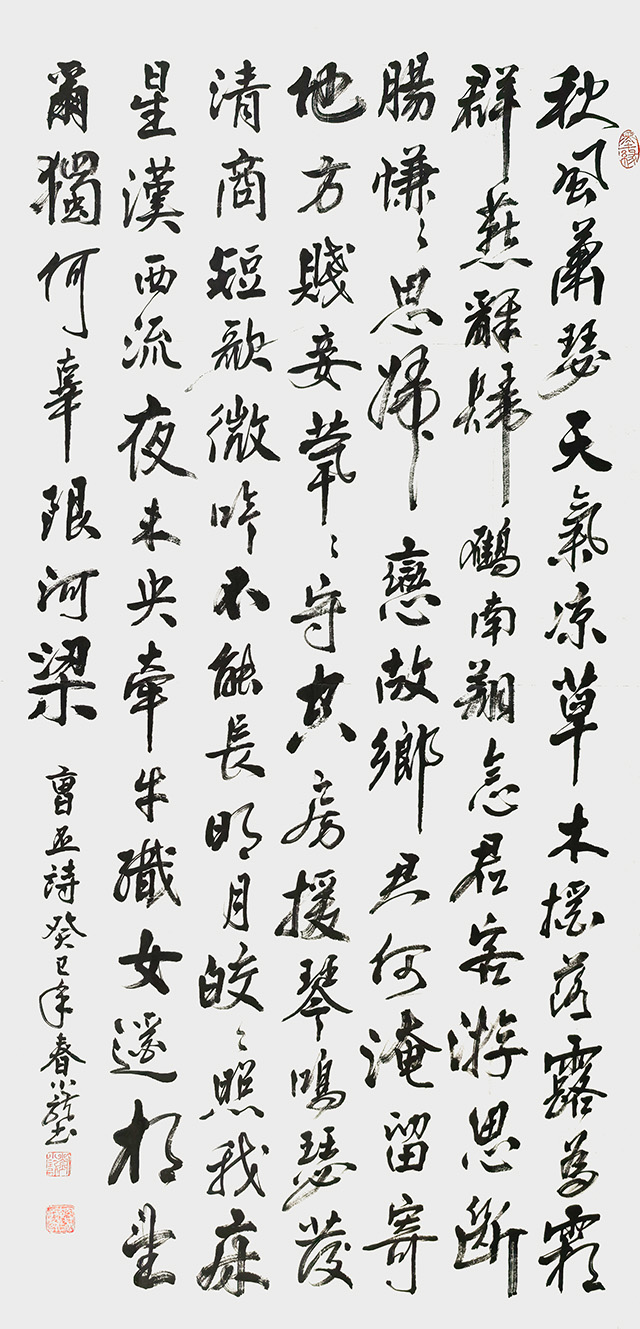 秋風蕭瑟天氣凉草木搖落露為霜
群燕辭歸鶴南翔念君客游思斷
腸慊〻思歸戀故鄉君何淹留寄
他方賤妾煢〻守空房援琴鳴瑟發
清商短歌微吟不能長明月皎〻照我床
星漢西流夜未央牽牛織女遥相望
爾獨何辜限河梁
曹丕詩癸巳年春小壟